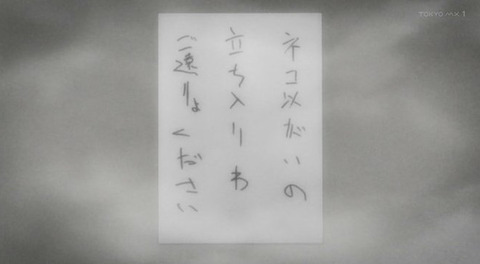 ネコ以がいの
立ち入りわ
ご遠りょください
TOKYO MX 1